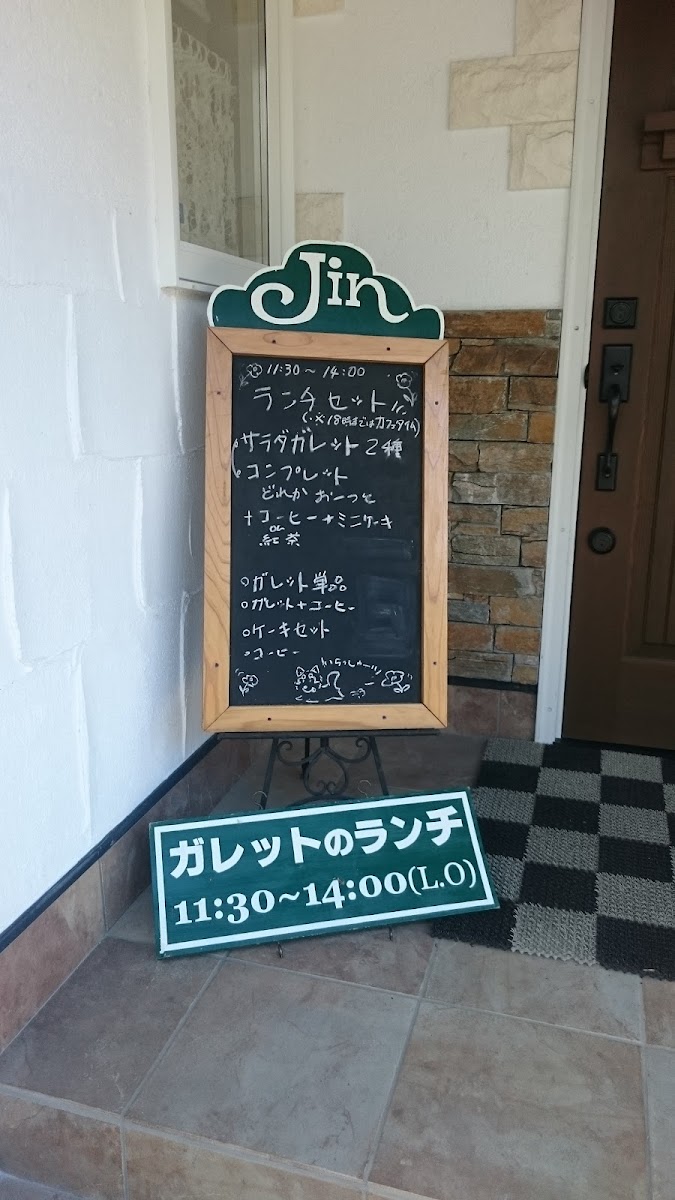 Jin
11:30〜14:00
ランチセット
(※18時まではカフェタイム)
サラダガレット2種
コンプレット
どれか お一つと
+コーヒー+ミニケーキ
or
紅茶
ガレット単品
ガレット+コーヒー
ケーキセット
コーヒー
いらっしゃーい
ガレットのランチ
11:30~14:00(L.O)